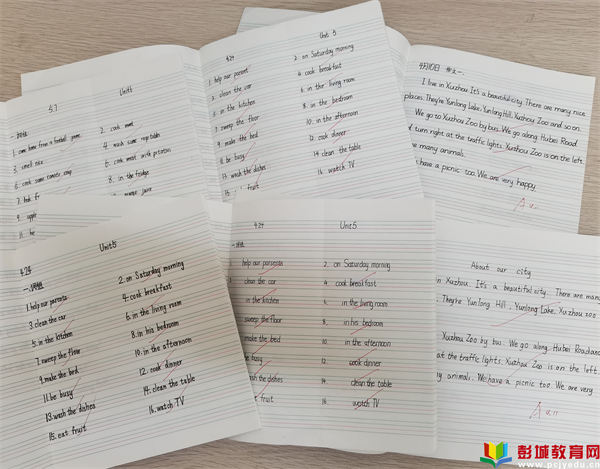 5.7 Unit6
一.词组
1. come home from a football game
2. cook meat
3. smell nice
4. wash some vegetables
5. cook some tomato soup
6. cook meat with potatoes
7. look for
8. in the fridge
9. apple
4.24 Unit 5
1. help our parents
2. on Saturday morning
3. clean the car
4. cook breakfast
5. in the kitchen
6. in the living room
7. sweep the floor
8. in the bedroom
9. make the bed
10. in the afternoon
11. be busy
12. cook dinner
13. wash the dishes
14. clean the table
15. eat fruit
16. watch TV
I live in Xuzhou. It's a beautiful city. There are many nice
places. They're Yunlong Lake, Yunlong Hill, Xuzhou Zoo and so on.
We go to Xuzhou Zoo by bus. We go along Hubei Road
turn right at the traffic lights. Xuzhou Zoo is on the left.
many animals.
have a picnic too. We are very happy.
4.24 Unit5
一.词组
1. help our parents
2. on Saturday morning
3. clean the car
4. cook breakfast
5. in the kitchen
6. in the living room
7. sweep the floor
8. in his bedroom
9. make the bed
10. in the afternoon
11. be busy
12. cook dinner
13. wash the dishes
14. clean the table
15. eat fruit
16. watch TV
4.24 Unit5
一.词组
help our parents
2. on Saturday morning
clean the car
4. cook breakfast
in the kitchen
6. in the living room
sweep the floor
8. in his bedroom
make the bed
10. in the afternoon
be busy
12. cook dinner
wash the dishes
14. clean the table
eat fruit
16. watch TV
About our city
in Xuzhou. It's a beautiful city. There are many
They're Yunlong Hill, Yunlong Lake, Xuzhou zoo
Xuzhou Zoo by bus. We go along Hubei Road and
at the traffic lights. Xuzhou Zoo is on the left.
animals. We have a picnic too. We are very
彭城教育网
www.pcjyedu.cn